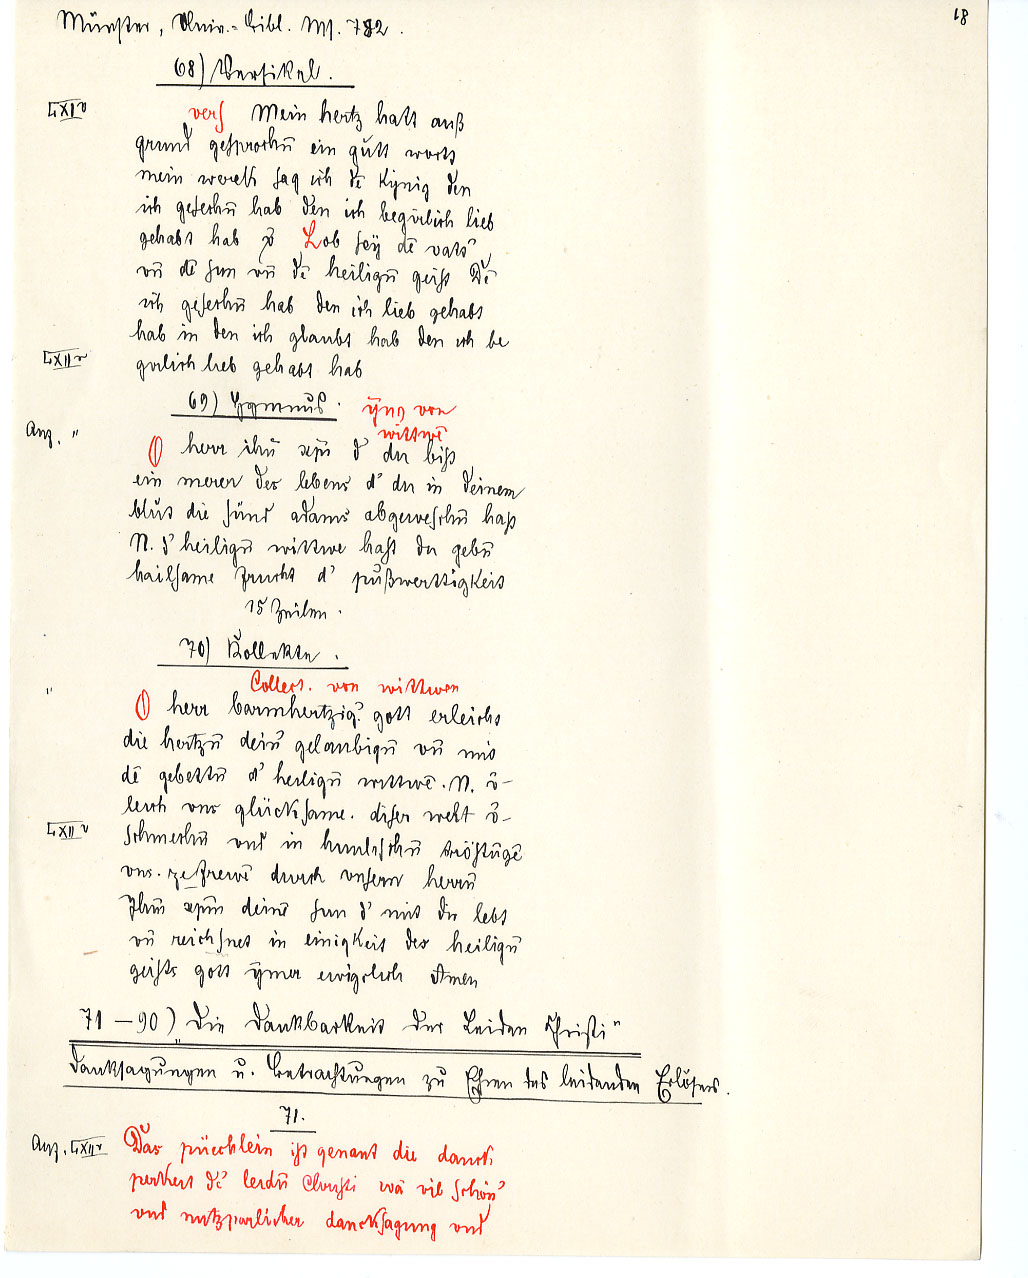 18
Münster, Univ.-Bibl. Ms. 782.
68) Versikel.
LXIv vers Mein hertz hatt auß
grund gesprochū ein gůtt wort
mein werch sag ich dē Kÿnig den
ich gesechū hab den ich begirlich lieb
gehabt hab Lob seÿ dē vatr̄
vn̄ dē sun vn̄ dē heiligū geist Dē
ich gesechū hab den ich lieb gehabt
hab in den ich glaubt hab den ich be
LXIIr girlich lieb gehabt hab
69) Hymnus. ÿm9 von
wittwē
Anf. " O herr ihū xp̄ū d' du bist
ein merer des lebens d' du in deinem
blůt die sünd adams abgeweschū hast
N. d' heiligū wittwe hast du gebū
hailsame frucht d' půßwertigkeit
15 Zeilen.
70) Kollekte.
Collect. von wittwen
" O herr barmhertzig' gott erleicht
die hertzū deinr̄ gelaubigū vn̄ mit
dē gebettū d' heiligū wittwē. N. ö-
leich vns glücksame. diser welt ö-
LXIIv schmechū vnd in himlischū tröstūgē
vns. ze frewē durch vnsern herrū
Jhm̄ xpm̄ deinē sun d' mit dir lebt
vn̄ reichsnet in einigkeit des heiligū
geists gott ÿmer ewigclich Amen
71–90) „Die Dankbarkeit der Leiden Christi"
Danksagungen u. Betrachtungen zu Ehren des leidenden Erlösers.
71.
Anf. LXIIv Das püechlein ist genant die danck
perkeit d' leidū Christi wā vil schönr̄
vnd nutzparlicher dancksagung vnd